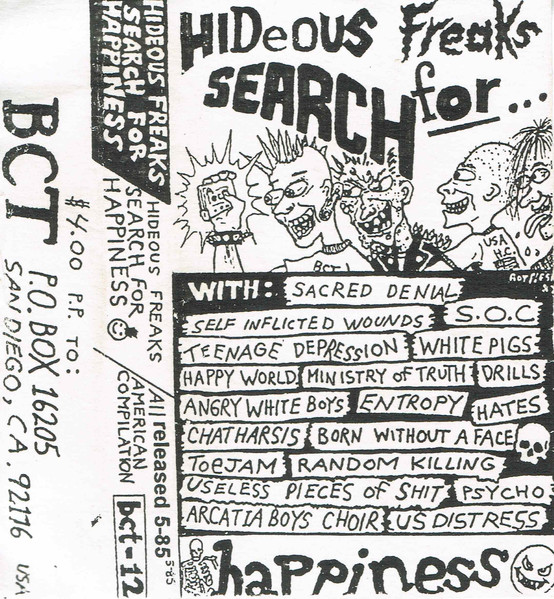 BCT
$4.00 P.P. TO:
P.O. BOX 16205
SAN DIEGO, CA. 92116 USA
HIDEOUS FREAKS
SEARCH FOR
HAPPINESS
HIDEOUS FREAKS
SEARCH FOR
HAPPINESS
All released 5-85
5-85
AMERICAN
COMPILATION
bct-12
HIDeOUS Freaks
SEARCH for...
BCT
USA
H.C.
WITH: SACRED DENIAL
SELF INFLICTED WOUNDS S.O.C
TEENAGE DEPRESSION WHITE PIGS
HAPPY WORLD MINISTRY OF TRUTH DRILLS
ANGRY WHITE BOYS ENTROPY HATES
CHATHARSIS BORN WITHOUT A FACE
TOeJAM RANDOM KILLING
USELESS PIECES OF SHIT PSYCHO
ARCATIA BOYS CHOIR US DISTRESS
happiness